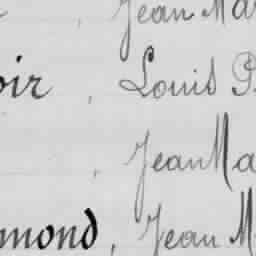 , Jean Ma
oir , Louis P
, Jean Ma
mond , Jean M